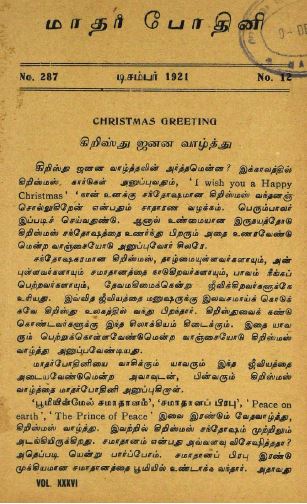 மாதர் போதினி
No. 287 டிசம்பர் 1921 No. 12
CHRISTMAS GREETING
கிறிஸ்து ஜனன வாழ்த்து
கிறிஸ்து ஜனன வாழ்த்தலின் அர்த்தமென்ன? இக்காலத்தில்
கிறிஸ்மஸ் கார்டுகள் அனுப்புவதும், 'I wish you a Happy
Christmas' 'நான் உனக்கு சந்தோஷமான கிறிஸ்மஸ் வந்தனஞ்
சொல்லுகிறேன் என்பதும் சாதாரண வழக்கம். பெரும்பாலார்
இப்படிச் செய்வதுண்டு. ஆனால் உண்மையான இருதயத்தோடு
கிறிஸ்மஸ் சந்தோஷத்தை உணர்ந்து பிறரும் அதை உணரவேண்டு
மென்ற வாஞ்சையோடு அனுப்புவோர் சிலரே.
சந்தோஷகரமான கிறிஸ்மஸ், தாழ்மையுள்ளவர்களாயும், அன்
புள்ளவர்களாயும் சமாதானத்தை நாடுகிறவர்களாயும், பாவம் நீங்கப்
பெற்றவர்களாயும், தேவமகிமைக்கென்று ஜீவிக்கிறவர்களுக்கே
உரியது. இவ்வித ஜீவியத்தை மனுஷருக்கு இலவசமாய்க் கொடுக்
தவே கிறிஸ்து உலகத்தில் வந்து பிறந்தார். கிறிஸ்துவைக் கண்டு
கொண்டவர்களுக்கு இந்த சிலாக்கியம் கிடைக்கும். இதை யாவ
ரும் பெற்றுக்கொள்ளவேண்டுமென்ற வாஞ்சையோடு கிறிஸ்மஸ்
வாழ்த்து அனுப்பவேண்டியது.
மாதர்போதினியை வாசிக்கும் யாவரும் இந்த ஜீவியத்தை
அடையவேண்டுமென்ற அவாவுடன், பின்வரும் கிறிஸ்மஸ்
வாழ்த்தை மாதர்போதினி அனுப்புகிறாள்.
'பூமியின்மேல் சமாதானம்', 'சமாதானப் பிரபு', 'Peace on
earth', 'The Prince of Peace' இவை இரண்டும் வேதவாழ்த்து,
கிறிஸ்மஸ் வாழ்த்து. இவற்றில் கிறிஸ்மஸ் சந்தோஷம் முற்றிலும்
அடங்கியிருக்கிறது. சமாதானம் என்பது அவ்வளவு விசேஷித்ததா?
அதெப்படி யென்று பார்ப்போம். சமாதானப் பிரபு இரண்டு
முக்கியமான சமாதானத்தை பூமியில் உண்டாக்க வந்தார். அதாவது
VOL. XXXVI